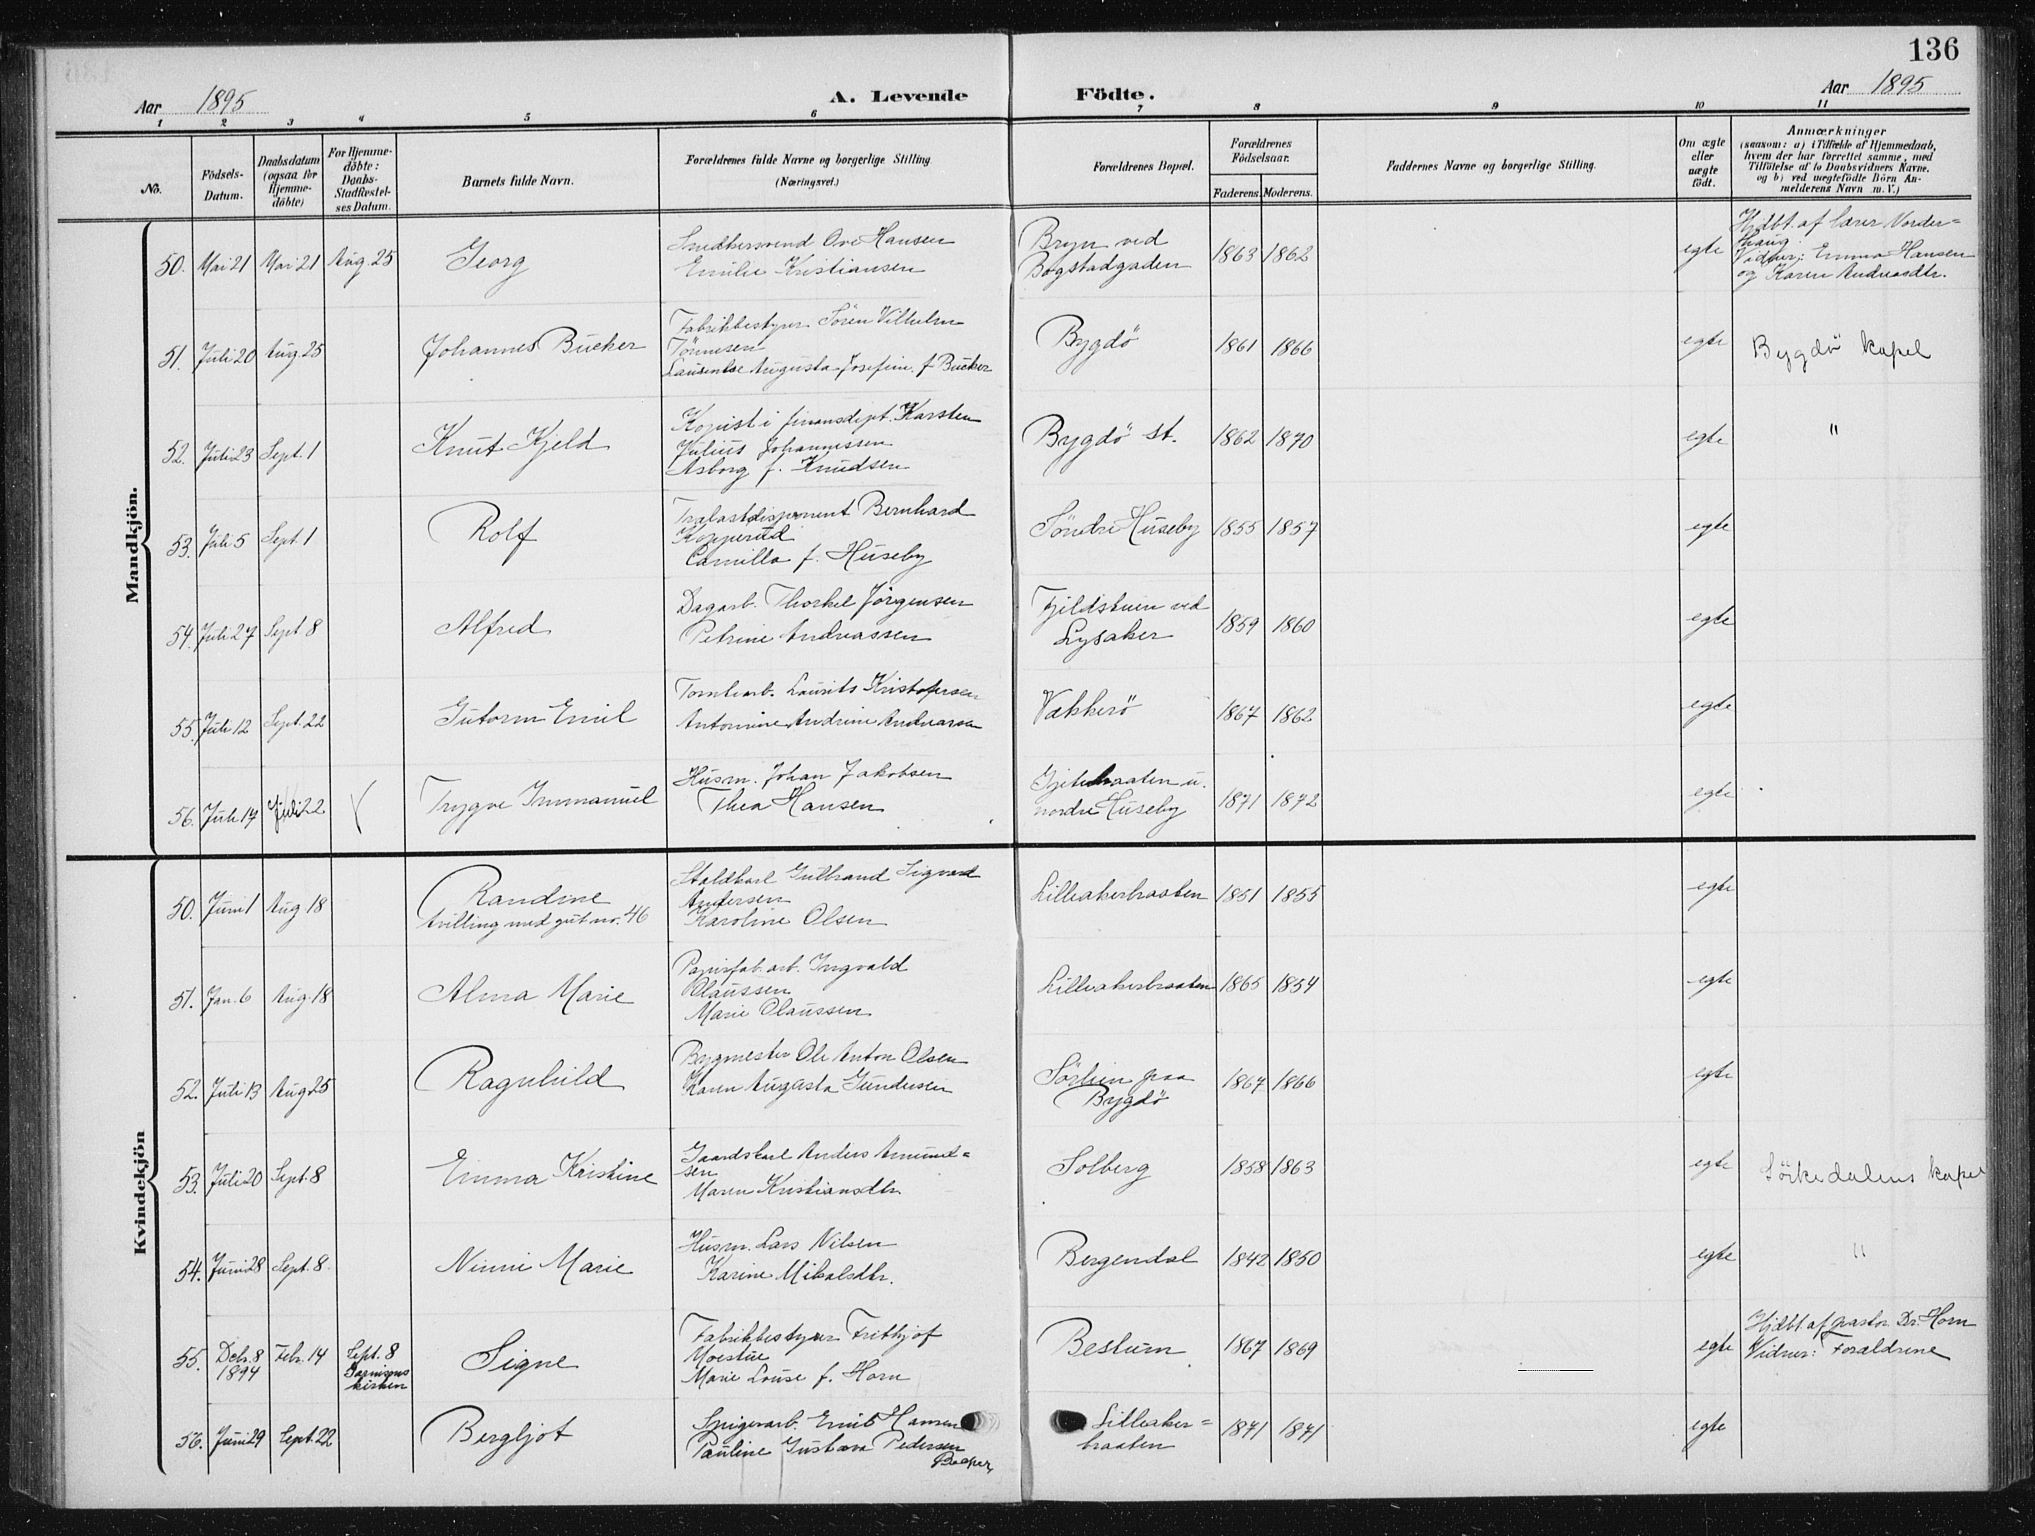 136
Aar 1895
A. Levende Födte.
Aar 1895
1 2 3 4 5 6 7 8 9 10 11
No.
Födsels-
Datum.
Daabsdatum
(ogsaa for
Hjemme-
döbte)
For Hjemme-
döbte:
Daabs-
Stadfæstel-
ses Datum.
Barnets fulde Navn.
Forældrenes fulde Navne og borgerlige Stilling
(Næringsvei.)
Forældrenes Bopæl.
Forældrenes
Födselsaar.
Faderens. Moderens.
Faddernes Navne og borgerlige Stilling.
Om ægte
eller
uægte
födt.
Anmærkninger
(saasom: a) i Tilfælde af Hjemmedaab,
hvem der har forrettet samme, med
Tilföielse af to Daabsvidners Navne.
og b) ved uægtefödte Börn An-
melderens Navn m. V.)
Mandkjön.
50. Mai 21 Mai 21 Aug. 25 Georg
Snedkersvend Ove Hansen
Emilie Kristiansen
Bryn ved
Bogstadgaden
1863 1862 egte
Hjdbt. af lærer Norder=
haug
Vidner: Emma Hansen
og Karen Andreasdtr.
51. Juli 20 Aug. 25 Johannes Bücker
Fabrikbestyrer Sören Vilhelm
Tönnesen
Augusta Josefine f. Bücker
Bygdö 1861 1866 egte Bygdö kapel
52. Juli 23 Sept. 1 Knut Kjeld
Kopist i finansdept. Karsten
Julius Johannessen
Asborg f. Knudsen
Bygdö st. 1862 1870 egte "
53. Juli 5 Sept. 1 Rolf
Trælastdisponent Bernhard
Kopperud
Camilla f. Huseby
Söndre Huseby 1855 1857 egte
54. Juli 27 Sept. 8 Alfred
Dagarb. Thorkel Jörgensen
Petrine Andreassen
Fjeldstuen ved
Lysaker
1859 1860 egte
55. Juli 12 Sept. 22 Gutorm Emil
Tomtearb. Laurits Kristofersen
Antonine Andrine Andreasen
Vækkerö 1867 1862 egte
56. Juli 17 Juli 22 Trygve Immanuel
Husm. Johan Jakobsen
Thea Hansen
Gjetebraaten u.
nordre Huseby
1871 1872 egte
Kvindekjön
50. Juni 1 Aug 18 Randine
tvilling med gut no. 46
Staldkarl Gulbrand Sigvard
Andersen
Karoline Olsen
Lilleakerbraaten 1851 1855 egte
51. Jan. 6 Aug. 18 Alma Marie
Papirfab. arb. Ingvald
Olaussen
Marie Olaussen
Lilleakerbraaten 1865 1854 egte
52. Juli 13 Aug 25 Ragnhild
Bygmester Ole Anton Olsen
Karen Augusta Gundersen
paa
Bygdö
1867 1866 egte
53. Juli 20 Sept. 8 Emma Kristine
Gaardskarl Anders Amund=
sen
Maren Kristiansdtr.
Solberg 1858 1863 egte Sörkedalens kapel
54. Juni 28 Sept. 8. Ninni Marie
Husm. Lars Nilsen
Karine Mikalsdtr.
Bergendal 1842 1850 egte "
55. Debr. 8
1894
Febr. 14
Sept. 8
Garnisons
kirken
Signe
Fabrikbestyrer Frithjof
Moestue
Marie Louise f. Horn
Bestum 1867 1869 egte
Hjdbt. af pastor Dr. Horn
Vidner: Forældrene
56. Juni 29 Sept. 22 Bergljot
Spigerarb. Emil Hansen
Pauline Gustava Pedersen
Lilleaker=
braaten
1871 1871 egte